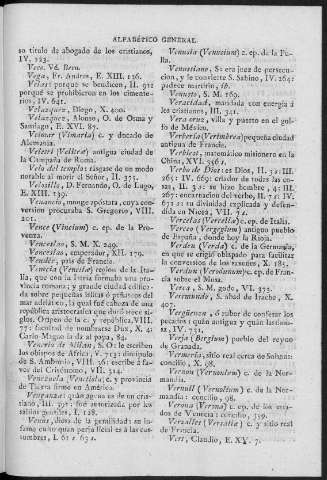 ALFABÉTICO GENERAL.
su título de abogado de los cristianos,
IV. 123.
Vero. Vd. Bero.
Vega, Fr. Andres, E. XIII. 136.
Velas: porque se bendicen, II. 312
porque se prohibieron en los cimenterios,
IV. 641.
Velazquez, Diego, X. 400.
Velazquez, Alonso, O. de Osma y
Santiago, E. XVI. 87.
Veimar (Vimaria) c. y ducado de
Alemania.
Veletri (Velitræ) antigua ciudad de
la Campaña de Roma.
Velo del templo: rasgase de un modo
notable al morir el Señor, II. 375.
Velosillo, D. Fernando, O. de Lugo,
E. XIII. 139.
Venancio, monge apóstata, cuya conversion
procuraba S. Gregorio, VIII.
201.
Vence (Vincium) c. ep. de la Provenza.
Venceslao, S. M. X. 249.
Venceslao, emperador, XII. 179.
Vendér, pris de Francia.
Venecia (Venetia) region de la Italia,
que con la Istria formaba una provincia
romana; y grande ciudad edificada
sobre pequeñas islas ó peñascos del
mar adriático, la qual fué cabeza de una
república aristocrática que duró trece siglos.
Orígen de la c. y república, VIII.
77: facultad de nombrarse Dux, X. 4:
Carlo Magno la dá al papa, 84.
Venerio de Milan, S. O.: le escriben
los obispos de Africa, V. 713: dimóculo
de S. Ambrosio, VIII. 26: escribe á favor
del Crisóstomo, VII. 314.
Venezuela (Venetiola) c. y provincia
de Tierra firme en América.
Venganza: quán agena es de un cristiano,
III. 391: fué autorizada por los
talibus gentiles, I. 128.
Venus, diosa de la genialidad: su infame
culto quan perjudicial es á las costumbres,
I. 61 x 63 s.
Venusia (Venusium) c. ep. de la Pulla.
Venustiano, S: era juez de persecucion,
y le convierte S. Sabino, IV. 264:
padece martirio, ib.
Venusto, S. M. 769.
Veracidad, mandada con energía á
los cristianos, III. 341.
Vera cruz, villa y puerto en el golfo
de México.
Verberia (Verimbrea) pequeña ciudad
antigua de Francia.
Verbiest, matemático misionero en la
China, XVI. 556 s.
Verbo de Dios: es Dios, II. 3: III.
265: IV. 669: criador de todas las cosas,
II. 3 s: se hizo hombre, 4: III.
267: encarnacion del verbo, II. 7: IV.
671 s: su divinidad explicada y defendida
en Nicea, VII. 74.
Vercelas (Vercellæ) c. ep. de Italia.
Vereco (Veregyum) antiguo pueblo
de España, donde hoy la Rioja.
Verden (Verda) c. de la Germania,
en que se erigió obispado para facilitar
la conversion de los saxones, X. 185.
Verdun (Verodunum) c. ep. de Francia
sobre el Musa.
Vereo, S. M. gode, VI. 373.
Veremundo, S. abad de Irache, X.
407.
Vergüenza, ó rubor de confesar los
pecados: quán antigua y quán lastimosa,
IV. 751.
Verja (Bergium) pueblo del reyno
de Granada.
Vermeria, sitio real cerca de Solsona:
concilio, X. 98.
Vernon (Vernonium) c. de la Normandía.
Vernull (Vernolium) c. de la Normandía:
concilio, 98.
Verona (Verona) c. ep. de los estados
de Venecia: concilio, 359.
Versalles (Versalia) c. y sitio real
de Francia.
Vert, Claudio, E. XV. 7.